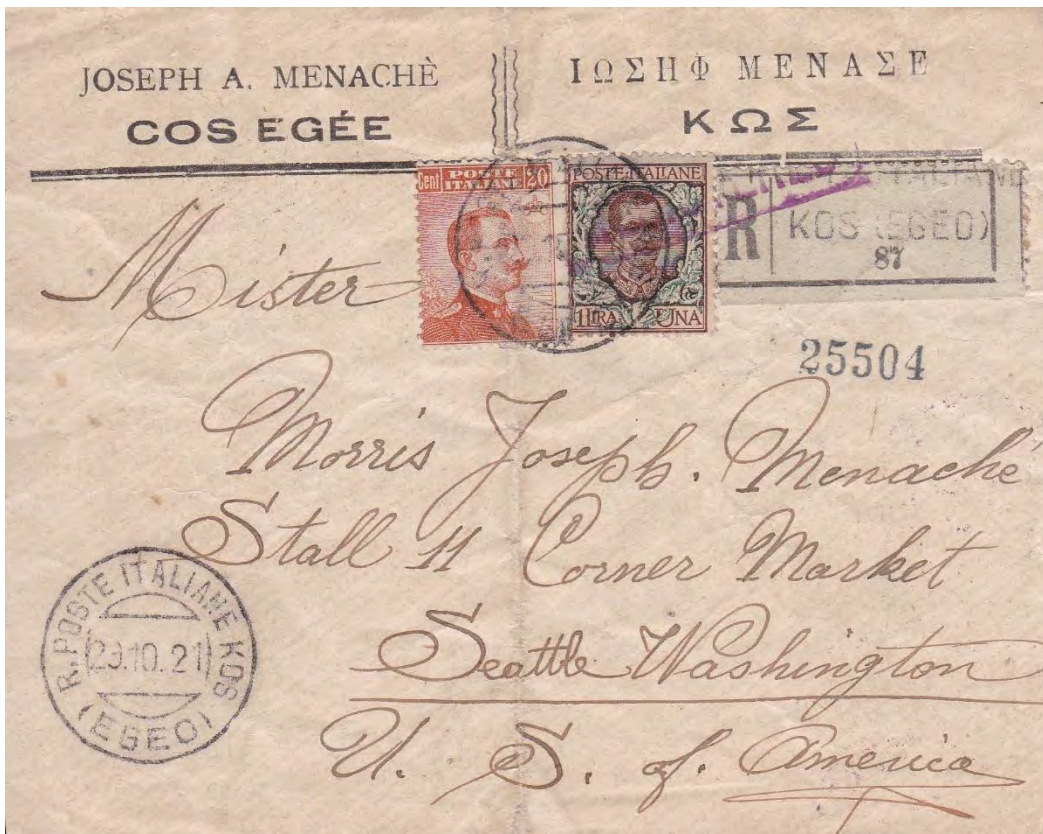 JOSEPH A. MENACHÈ
COS EGÉE
ΙΩΣΗΦ ΜΕΝΑΣΕ
ΚΩΣ
Cent POSTE ITALIANE 20
POSTE ITALIANE
1 LIRA UNA
R
KOS (EGEO)
87
25504
Mister
Morris Joseph. Menaché
Stall 11 Corner Market
Seattle Washington
U. S. of. America
R. POSTE ITALIANE KOS
29.10.21
(EGEO)